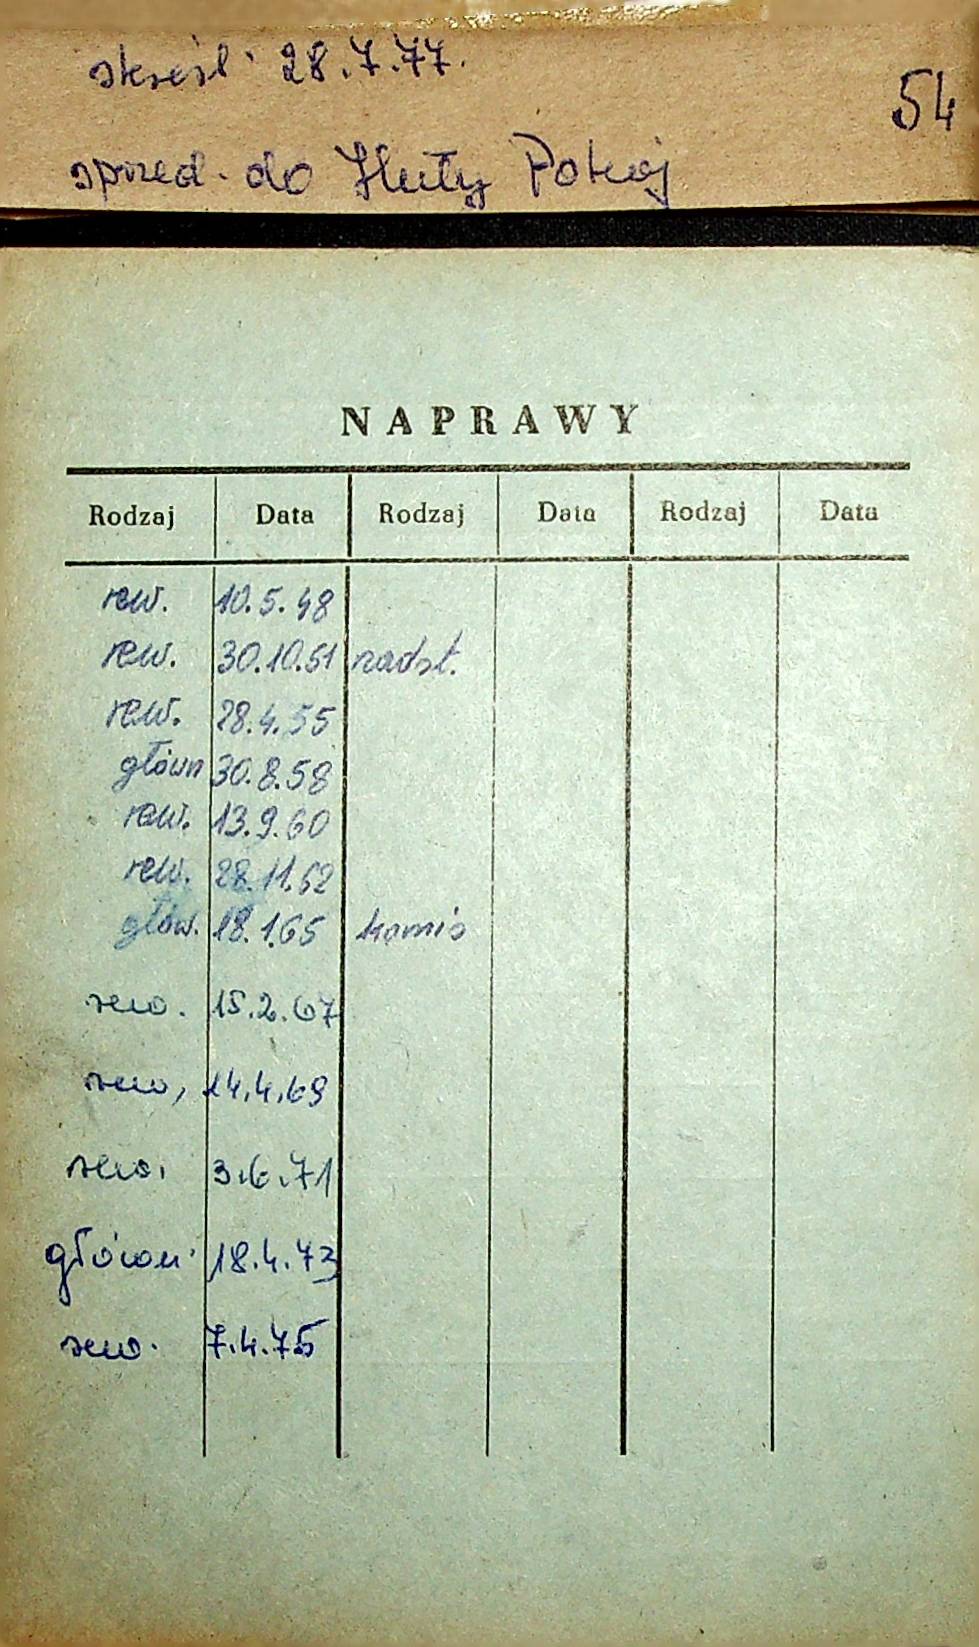 skreśl. 28.7.77.
54
sprzed. do Huty Pokój
NAPRAWY
Rodzaj Data Rodzaj Data Rodzaj Data
rew. 10.5.48
rew. 30.10.51 nadst.
rew. 28.4.55
główn 30.8.58
rew. 13.9.60
rew. 28.11.62
głów. 18.1.65 komis
rew. 15.2.67
rew, 14.4.69
rew. 3.6.71
główn. 18.4.73
rew. 7.4.75